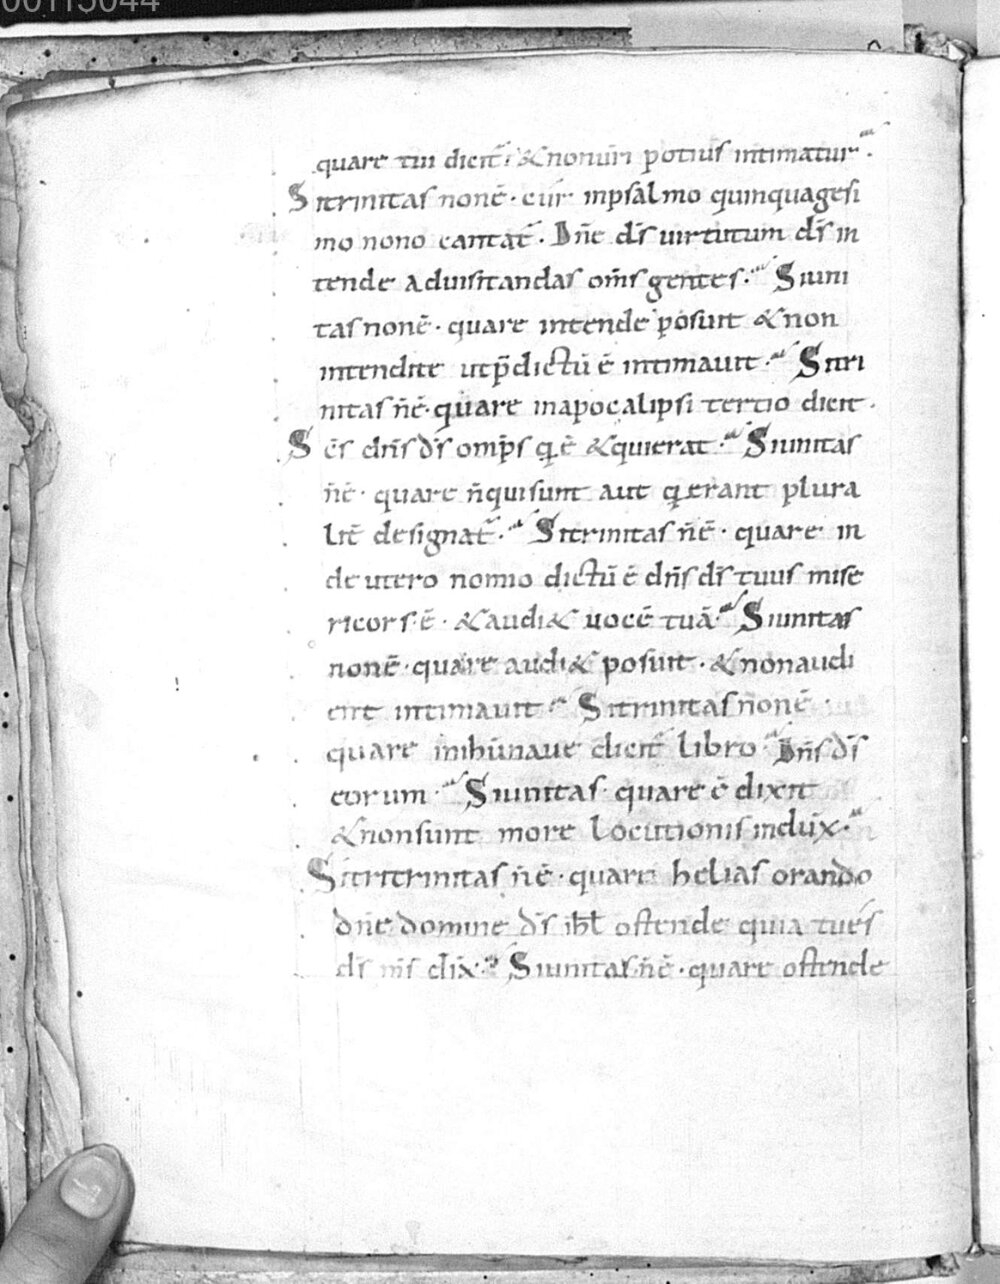 00115044
quare tui dicit̄. & non uri potius intimatur.
Si trinitas non ē. cur in psalmo quinquagesi
mo nono cantat̄. Dn̄e d̄s uirtutum d̄s in
tende ad uisitandas om̄s gentes. Si uni
tas non ē. quare intende posuit & non
intendite ut p̄dictū ē intimauit. Si tri
nitas n̄ ē. quare in apocalipsi tertio dicit.
Sc̄s dn̄s d̄s omp̄s q̣ ē & qui erat. Si unitas
n̄ ē. quare n̄ qui sunt aut q̣ erant plura
lit̄ designat̄. Si trinitas n̄ ē. quare in
deutero nomio dictū ē dn̄s d̄s tuus mise
ricors ē. & audi& uocē tuā. Si unitas
non ē. quare audi& posuit. & non audi
ent intimauit. Si trinitas non ē
quare in libro Dn̄s d̄s
eorum. Si unitas. quare ē dixit
& non sunt more locutionis indux̄.
Si tri trinitas n̄ ē. quare helias orando
dn̄e domine d̄s ihl̄ ostende quia tu es
d̄s dix̄. Si unitas n̄ ē. quare ostende